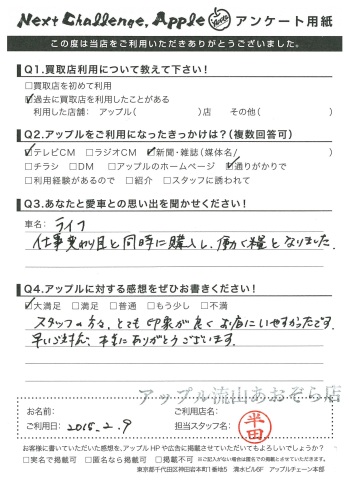 Next Challenge, Apple アンケート用紙
この度は当店をご利用いただきありがとうございました。
Q1.買取店利用について教えて下さい！
□買取店を初めて利用
☑過去に買取店を利用したことがある
利用した店舗： アップル（　　　　）店　その他（　　　　）
Q2.アップルをご利用になったきっかけは？（複数回答可）
☑テレビCM □ラジオCM ☑新聞・雑誌（媒体名/　　　　）
□チラシ □DM □アップルのホームページ ☑通りがかりで
□利用経験があるので □紹介 □スタッフに誘われて
Q3.あなたと愛車との思い出を聞かせください！
車名： ライフ
仕事変わり目と同時に購入し、働く糧となりました。
Q4.アップルに対する感想をぜひお書きください！
☑大満足 □満足 □普通 □もう少し □不満
スタッフの方々、とても印象が良くお店にいやすかったです。
早い、本当にありがとうございます。
アップル流山あおぞら店
お名前： ご利用店名：
ご利用日： 2015.2.9 担当スタッフ名： 半田
お客様に書いていただいた感想を、アップルHPや広告に掲載させていただいてもよろしいでしょうか？
□実名で掲載可 □匿名なら掲載可 □掲載不可 ※ご記入がない場合は匿名での掲載とさせていただきます。
東京都千代田区神田岩本町1番地5 清水ビル6F アップルチェーン本部